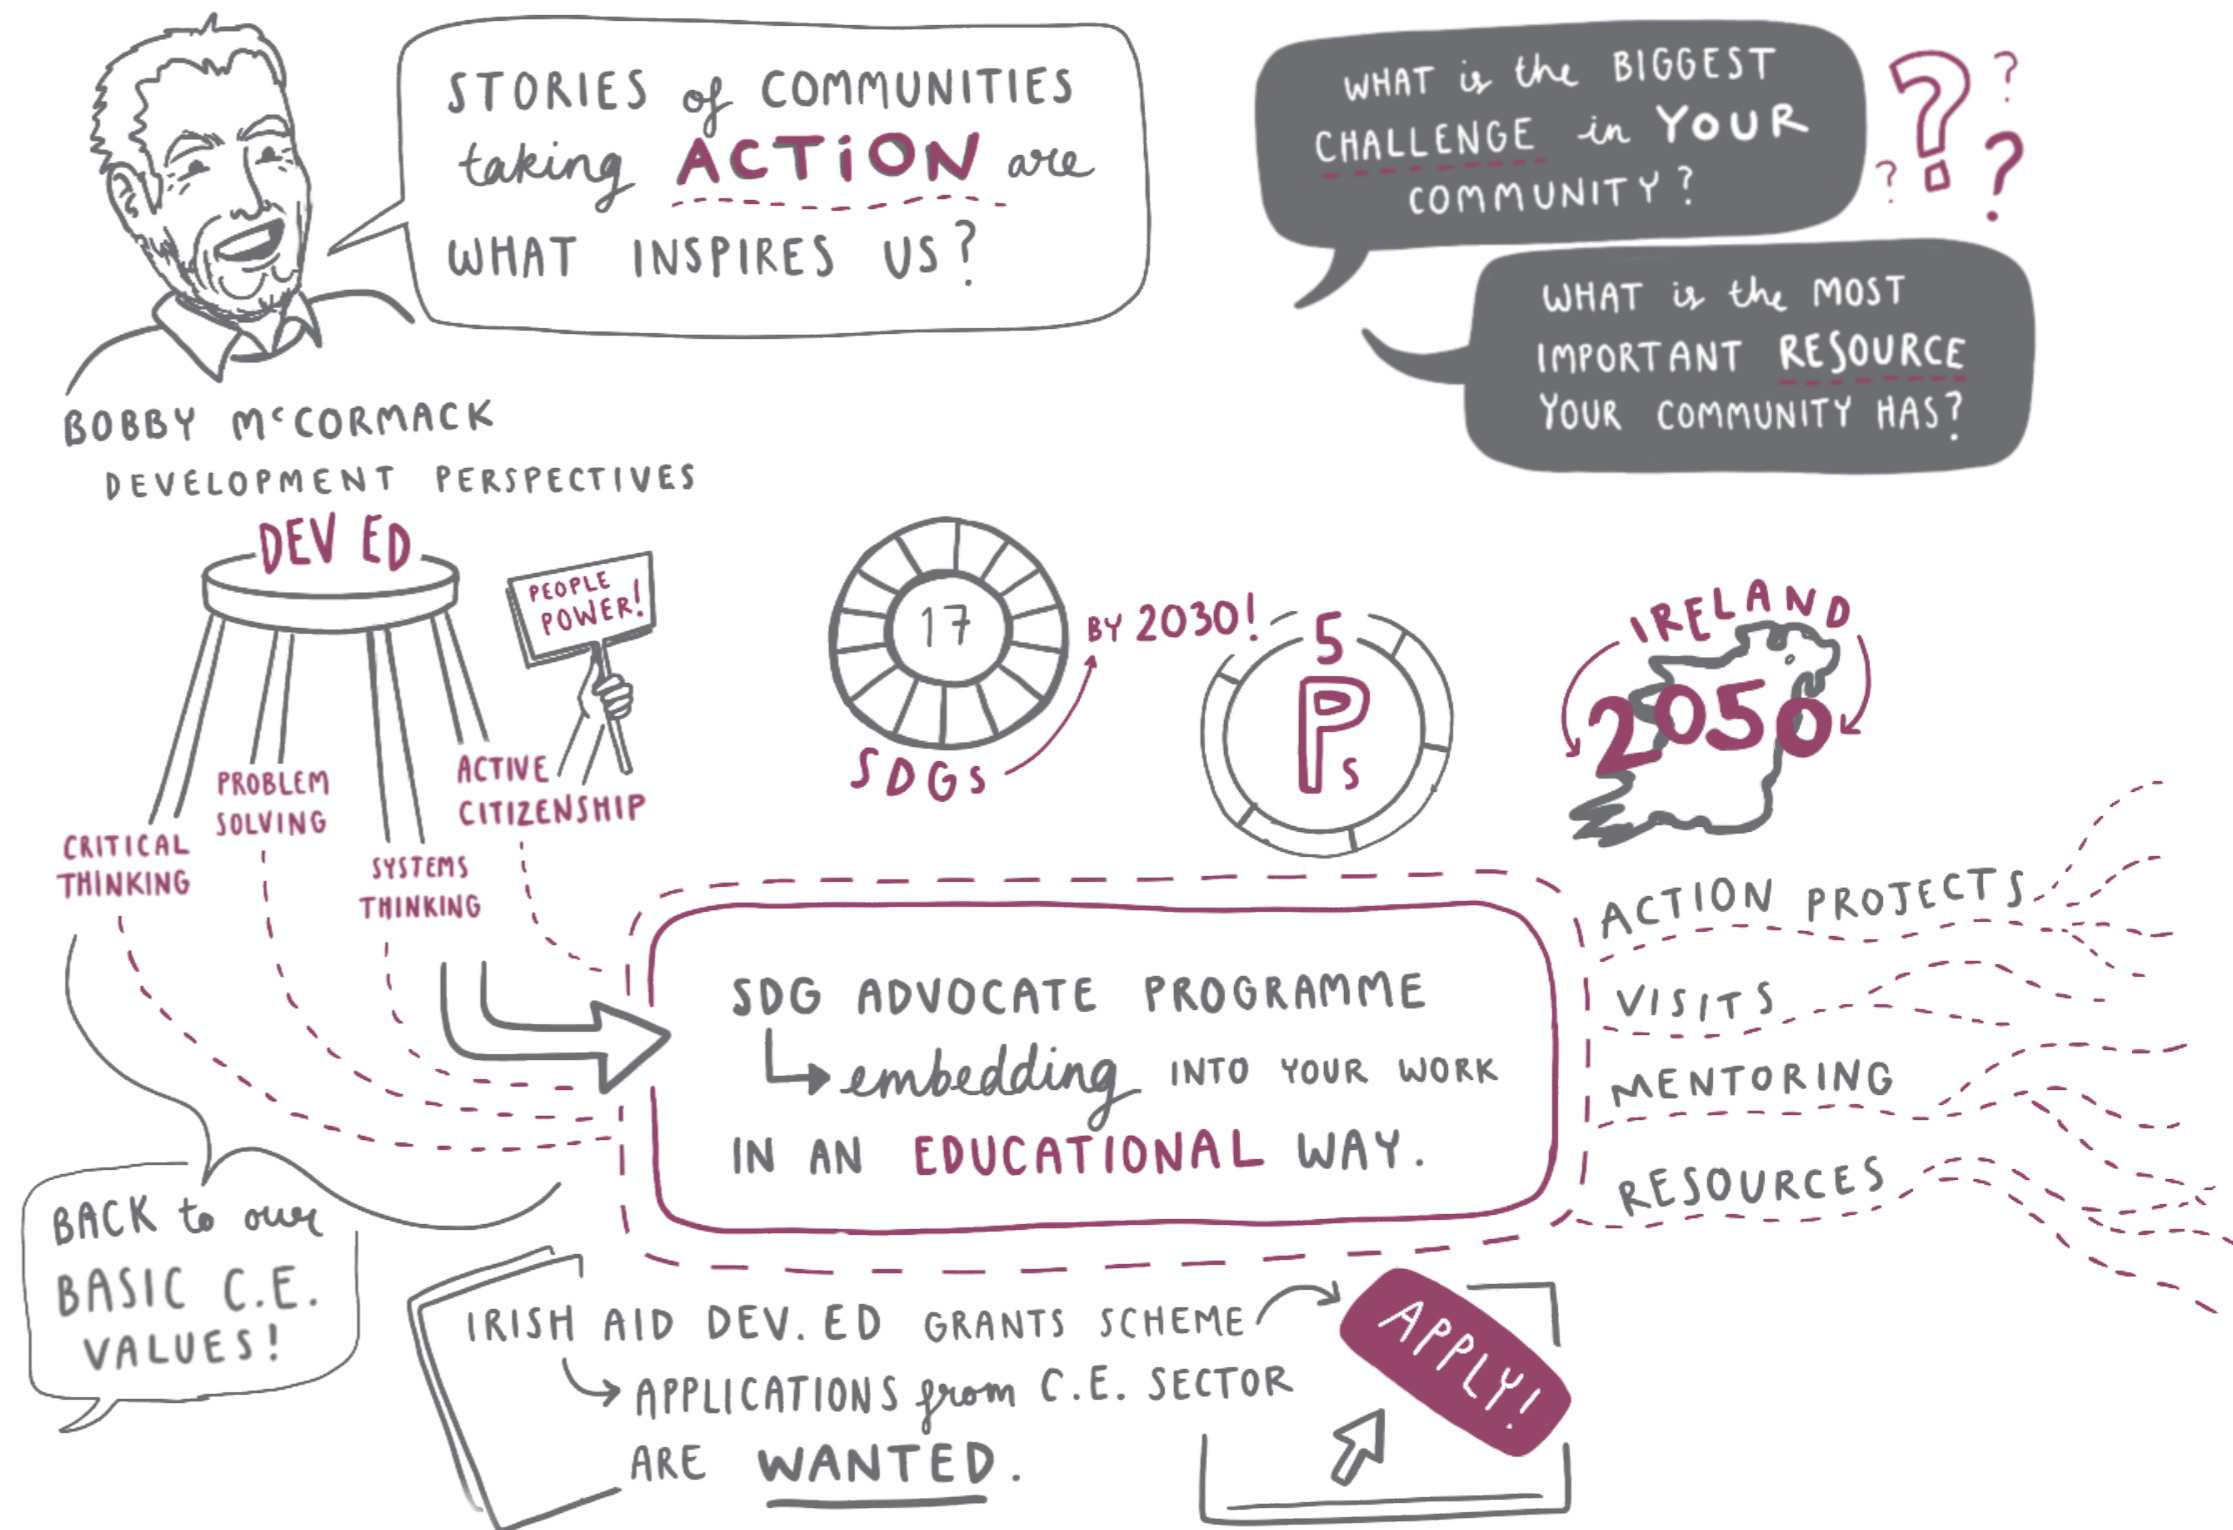 STORIES of COMMUNITIES
taking ACTION are
WHAT INSPIRES US?
WHAT is the BIGGEST
CHALLENGE in YOUR
COMMUNITY?
? ? ? ?
WHAT is the MOST
IMPORTANT RESOURCE
YOUR COMMUNITY HAS?
BOBBY McCORMACK
DEVELOPMENT PERSPECTIVES
DEV ED
PEOPLE
POWER!
CRITICAL
THINKING
PROBLEM
SOLVING
SYSTEMS
THINKING
ACTIVE
CITIZENSHIP
17
SDGs
BY 2030!
5
Ps
IRELAND
2050
SDG ADVOCATE PROGRAMME
embedding INTO YOUR WORK
IN AN EDUCATIONAL WAY.
ACTION PROJECTS
VISITS
MENTORING
RESOURCES
BACK to our
BASIC C.E.
VALUES!
IRISH AID DEV. ED GRANTS SCHEME
APPLICATIONS from C.E. SECTOR
ARE WANTED.
APPLY!